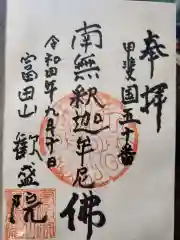 奉拝
甲斐国五十番
南無釈迦牟尼佛
令和四年九月十日
富田山
歓盛院